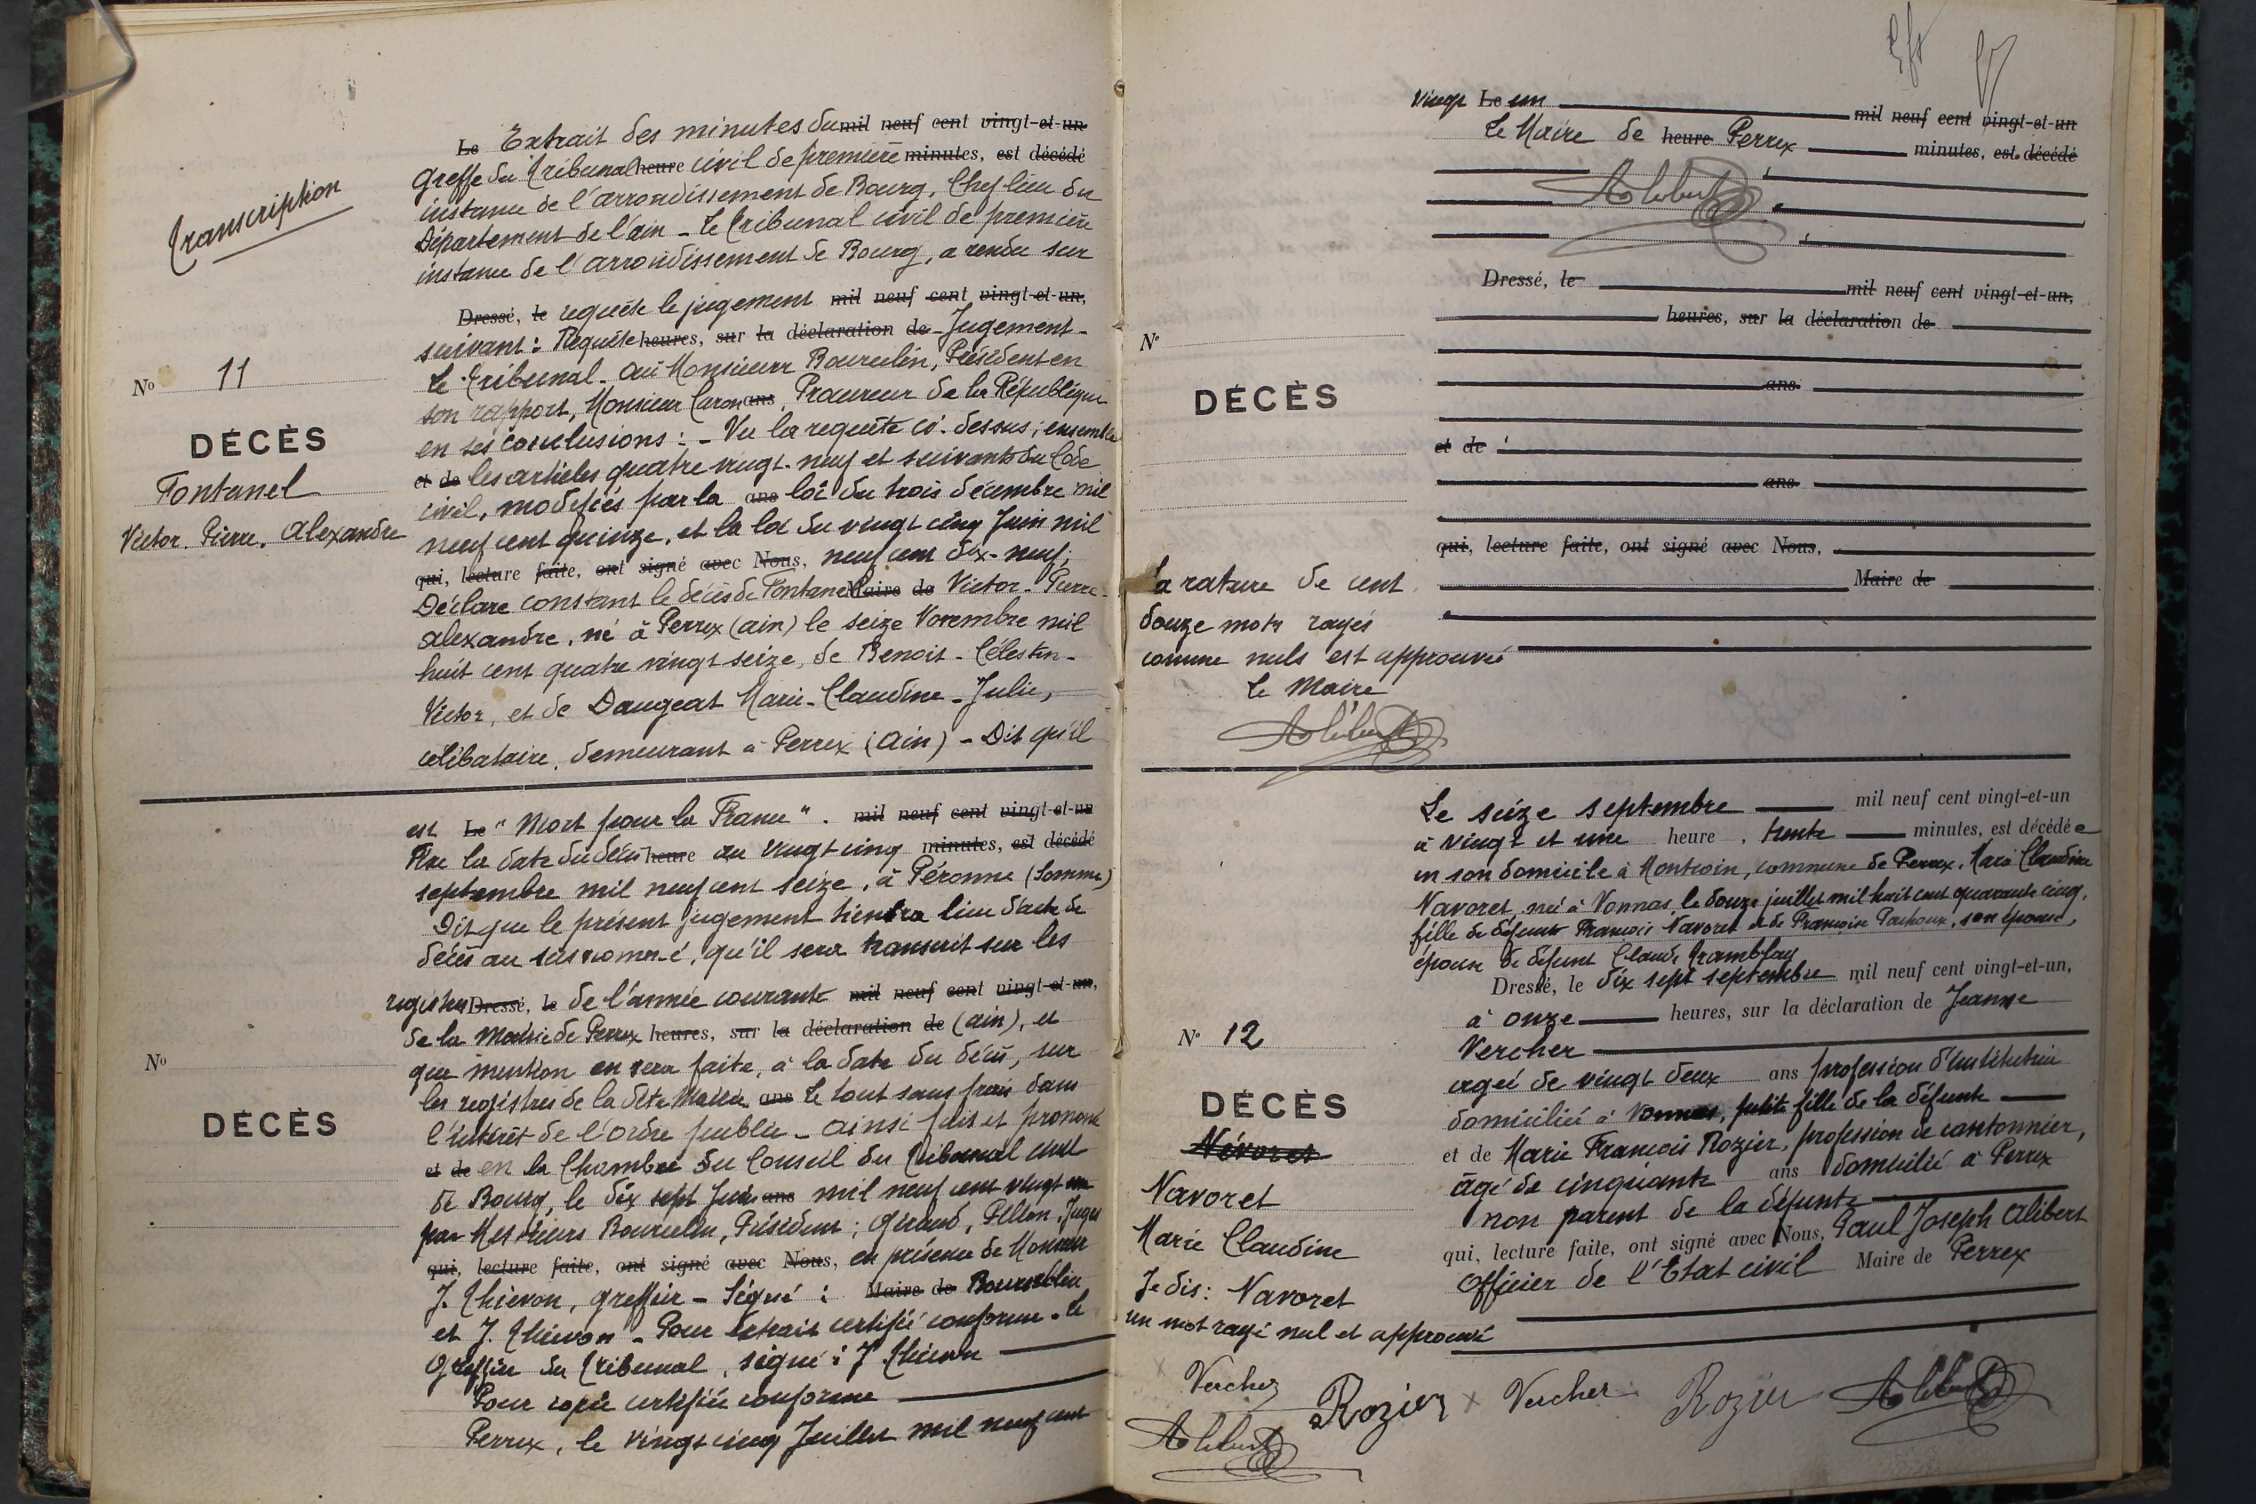 Transcription
Le Extrait des minutes du mil neuf cent vingt-et-un
greffe du Tribunal heure civil de première minutes, est décédé
instance de l'arrondissement de Bourg, Chef lieu du
Département de l'ain - Le Tribunal civil de première
instance de l'arrondissement de Bourg, a rendu sur
Dressé, le requête le jugement mil neuf cent vingt-et-un,
suivant : Requête heures, sur la déclaration de - Jugement -
Le Tribunal - Oui Monsieur Bourcelin, Président en
son rapport, Monsieur Caron ans, Procureur de la République
en ses conclusions : - Vu la requête ci-dessus ; ensemble
et de les articles quatre vingt-neuf et suivants du Code
civil, modifiés par la ans loi du trois décembre mil
neuf cent quinze, et la loi du vingt cinq Juin mil
qui, lecture faite, ont signé avec Nous, neuf cent dix-neuf ;
Déclare constant le décès de Fontanel Maire de Victor - Pierre -
alexandre, né à Perrex (ain) le seize Novembre mil
huit cent quatre vingt seize, de Benoit - Célestin -
Victor, et de Daugeat Marie - Claudine - Julie,
célibataire, demeurant à Perrex (Ain) - Dit qu'il
No 11
DÉCÈS
Fontanel
Victor. Pierre. Alexandre
est Le "Mort pour la France". mil neuf cent vingt-et-un
Fixe la date du décès heure au vingt cinq minutes, est décédé
septembre mil neuf cent seize, à Péronne (Somme)
Dit que le présent jugement tiendra lieu d'acte de
décès au susnommé, qu'il sera transcrit sur les
registres Dressé, le de l'année courante mil neuf cent vingt-et-un,
de la Mairie de Perrex heures, sur la déclaration de (ain), et
que mention en sera faite, à la date du décès, sur
les registres de la dite Mairie ans Le tout sans frais dans
l'intérêt de l'ordre public - ainsi fait et prononcé
et de en la Chambre du Conseil du Tribunal civil
de Bourg, le dix sept Juin ans mil neuf cent vingt un
par Messieurs Bourcelin, Président ; Giraud, Juges
qui, lecture faite, ont signé avec Nous, en présence de Monsieur
J. Thievon, greffier - Signé : Maire de Bourcelin
et J. Thievon - Pour extrait certifié conforme - le
Greffier du Tribunal, signé : J Thievon
Pour copie certifiée conforme
Perrex, le vingt cinq Juillet mil neuf cent
No
DÉCÈS
vingt Le un mil neuf cent vingt-et-un
Le Maire de heure Perrex minutes, est décédé
Alibert
Dressé, le mil neuf cent vingt-et-un,
heures, sur la déclaration de
ans
et de
ans
qui, lecture faite, ont signé avec Nous,
Maire de
No
DÉCÈS
La rature de cent
douze mots rayés
comme nuls est approuvée
Le Maire
Alibert
Le seize septembre mil neuf cent vingt-et-un
à vingt et une heure, trente minutes, est décédée
en son domicile à Montroin, commune de Perrex, Marie Claudine
Navoret, née à Vonnas, le douze juillet mil huit cent quarante cinq,
fille de défunts François Navoret et de Françoise Pachoux, son épouse,
épouse de défunt Claude Gramblay
Dressé, le dix sept septembre mil neuf cent vingt-et-un,
à onze heures, sur la déclaration de Jeanne
Vercher
agée de vingt deux ans profession d'institutrice
domiciliée à Vonnas, petite fille de la défunte
et de Marie François Rozier, profession de cantonnier,
âgé de cinquante ans domicilié à Perrex
non parent de la défunte
qui, lecture faite, ont signé avec Nous, Paul Joseph Alibert
Officier de l'Etat civil Maire de Perrex
No 12
DÉCÈS
Névoret
Navoret
Marie Claudine
Je dis : Navoret
un mot rayé nul et approuvé
Vercher Rozier Vercher Rozier Alibert
Alibert